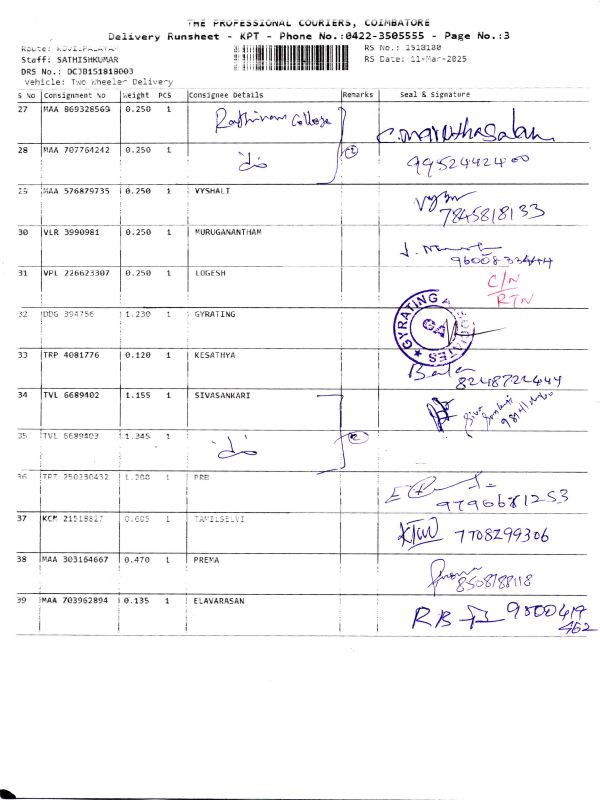 THE PROFESSIONAL COURIERS, COIMBATORE
Delivery Runsheet - KPT - Phone No.:0422-3505555 - Page No.:3
Route: KOVILPALAYAM
RS No.: 1518180
Staff: SATHISHKUMAR
RS Date: 11-Mar-2025
DRS No.: DCJB151818003
Vehicle: Two Wheeler Delivery
S No Consignment No Weight PCS Consignee Details Remarks Seal & Signature
27 MAA 869328569 0.250 1 Rathinam College
28 MAA 707764242 0.250 1 9952442400
29 MAA 576879735 0.250 1 VYSHALI 7845818133
30 VLR 3990981 0.250 1 MURUGANANTHAM
31 VPL 226623307 0.250 1 LOGESH C/N RTN
32 DDG 394756 1.230 1 GYRATING GYRATING ASSOCIATES GA
33 TRP 4081776 0.120 1 KESATHYA Bala 8248722444
34 TVL 6689402 1.155 1 SIVASANKARI
35 TVL 6689403 1.345 1
36 TRT 250230432 1.200 1 PRB 9790681253
37 KCM 21518827 0.605 1 TAMILSELVI 7708299306
38 MAA 303164667 0.470 1 PREMA 8508788118
39 MAA 703962894 0.135 1 ELAVARASAN RB 9500419
462